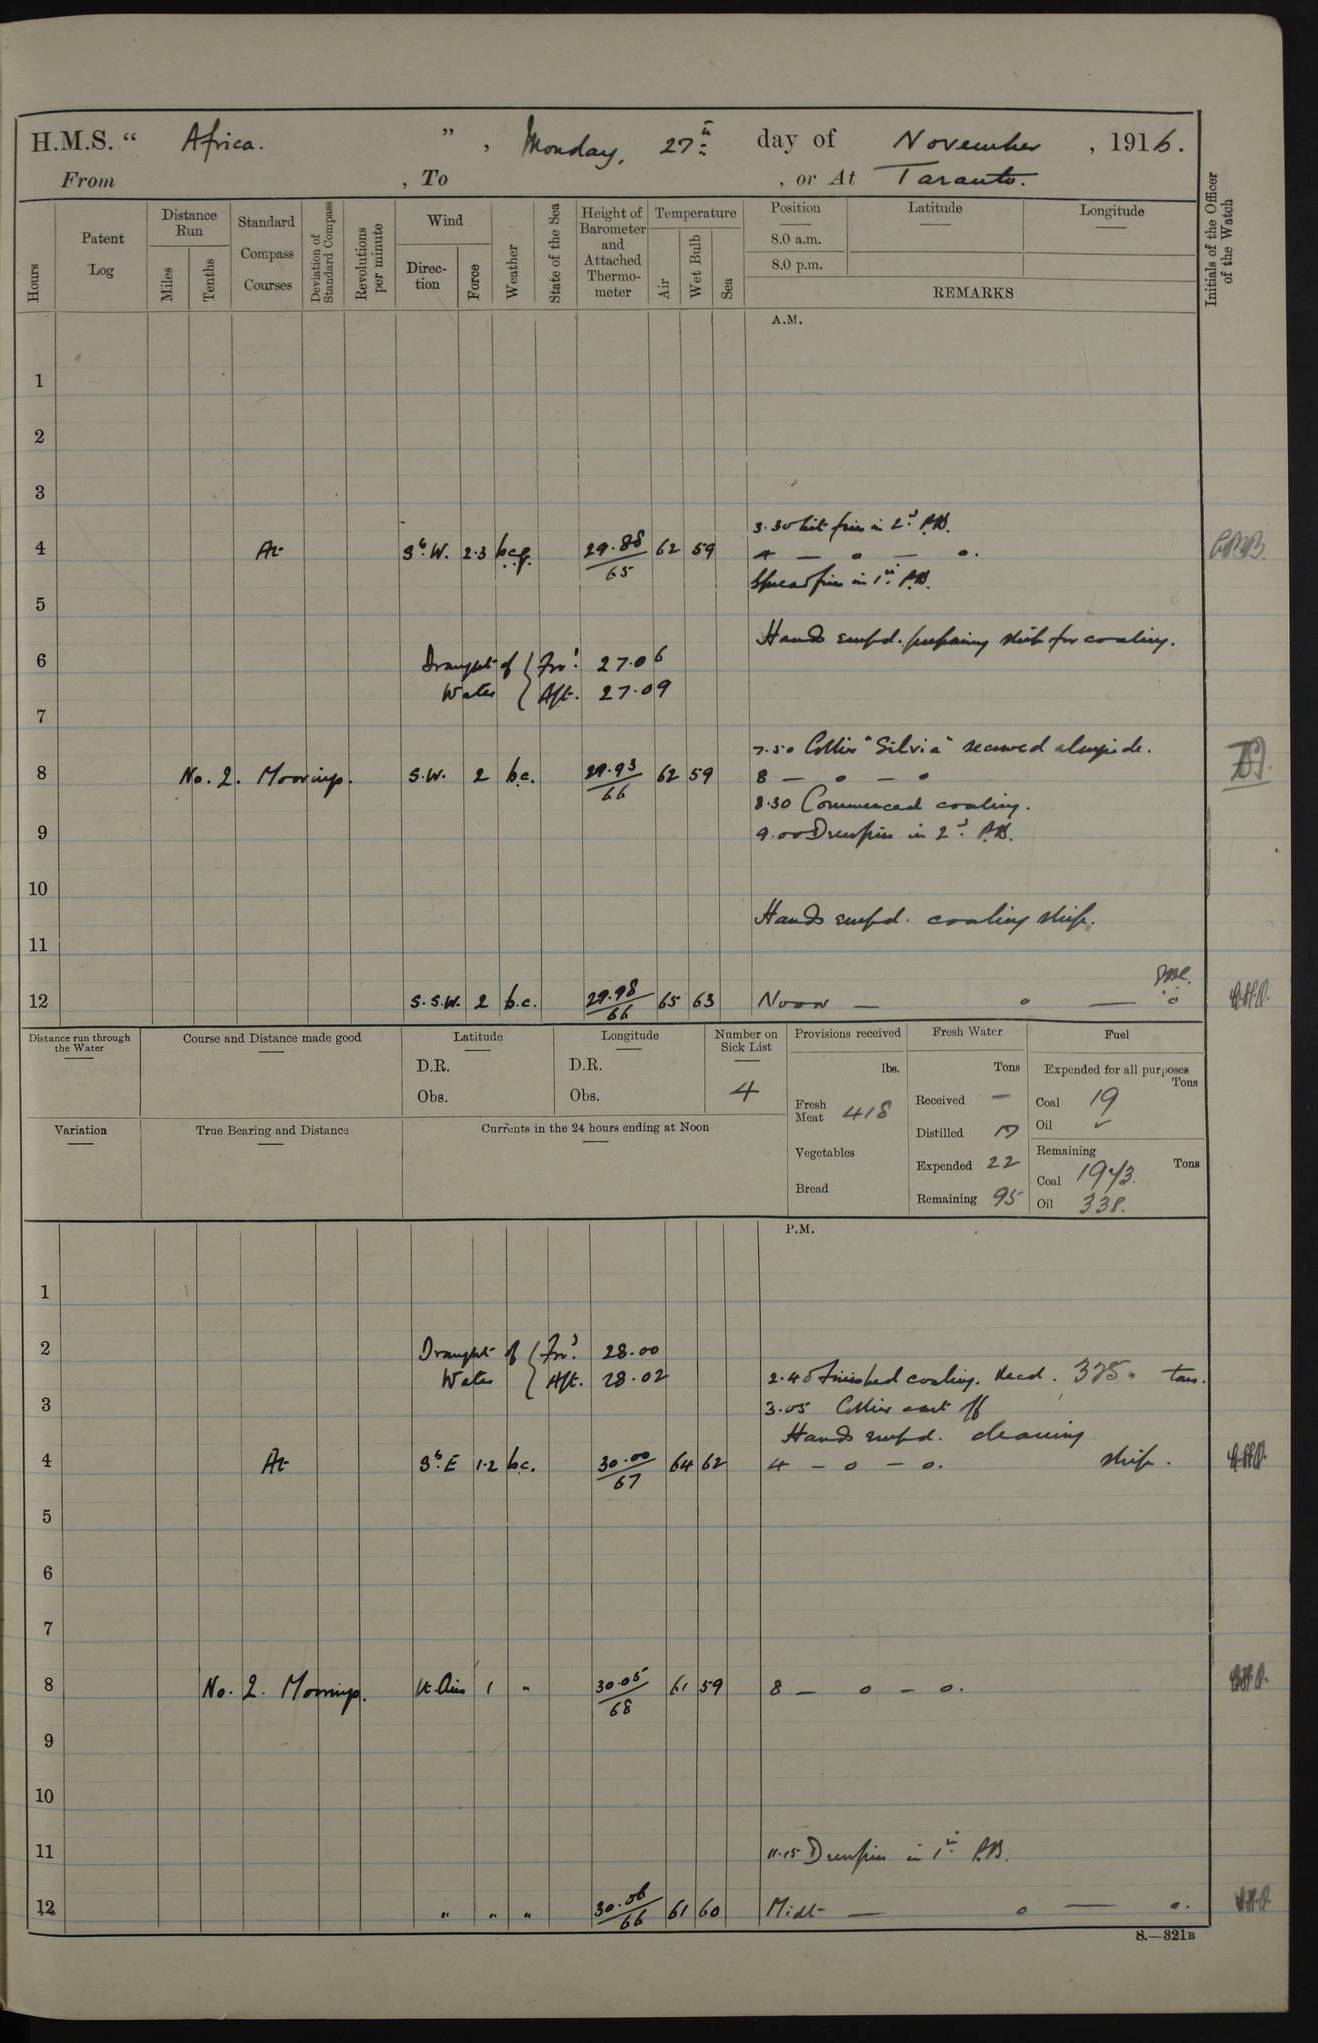 H.M.S. " Africa. ", Monday, 27th day of November, 1916.
From , To , or At Taranto.
Hours
Patent Log
Distance Run
Miles
Tenths
Standard Compass Courses
Deviation of Standard Compass
Revolutions per minute
Wind
Direc-tion
Force
Weather
State of the Sea
Height of Barometer and Attached Thermo-meter
Temperature
Air
Wet Bulb
Sea
Position
8.0 a.m.
8.0 p.m.
Latitude
Longitude
REMARKS
Initials of the Officer of the Watch
A.M.
1
2
3
3.30 Lit fires in 2nd P.B.
4 At SbW. 2.3 bcp. 29.88/65 62 59 4 — o — o.
Spread fires in 1st P.B.
5
Hands empd. preparing ship for coaling.
6 Draught of Water { For'd 27.06
Aft. 27.09
7
7.50 Collier "Silvia" secured alongside.
8 No. 2. Moorings. S.W. 2 bc. 29.93/66 62 59 8 — o — o
8.30 Commenced coaling.
9 9.00 Drew fires in 2nd P.B.
10
Hands empd. coaling ship.
11
12 S.S.W. 2 b.c. 29.98/66 65 63 Noon — o — o
Distance run through the Water
Course and Distance made good
Latitude
D.R.
Obs.
Longitude
D.R.
Obs.
Number on Sick List
4
Provisions received
lbs.
Fresh Meat 418
Vegetables
Bread
Fresh Water
Tons
Received —
Distilled 17
Expended 22
Remaining 95
Fuel
Expended for all purposes
Tons
Coal 19
Oil ✓
Remaining
Tons
Coal 1943.
Oil 338.
Variation
True Bearing and Distance
Currents in the 24 hours ending at Noon
P.M.
1
2 Draught of Water { For'd 28.00
Aft. 28.02
2.40 Finished coaling. Recd. 375. tons.
3 3.05 Collier cast off
Hands empd. cleaning ship.
4 At SbE 1.2 bc. 30.00/67 64 62 4 — o — o.
5
6
7
8 No. 2. Moorings. Lt. Airs 1 " 30.05/68 61 59 8 — o — o.
9
10
11 11.15 Drew fires in 1st P.B.
12 " " " 30.06/66 61 60 Midt — o — o.
S.—321B